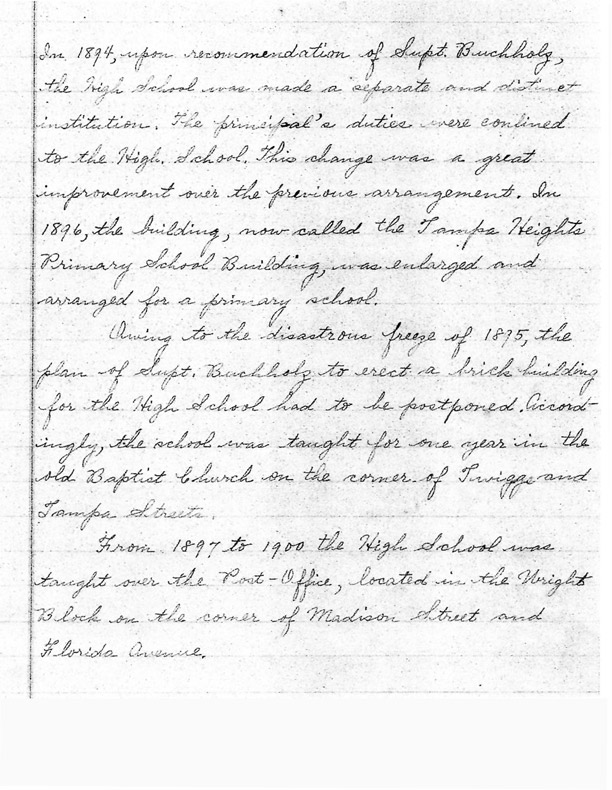 In 1894, upon recommendation of Supt. Buchholz,
the High School was made a separate and distinct
institution. The principal's duties were confined
to the High School. This change was a great
improvement over the previous arrangement. In
1896, the building, now called the Tampa Heights
Primary School Building, was enlarged and
arranged for a primary school.
Owing to the disastrous freeze of 1895, the
plan of Supt. Buchholz to erect a brick building
for the High School had to be postponed. Accord-
ingly, the school was taught for one year in the
old Baptist Church on the corner of Twiggs and
Tampa Streets.
From 1897 to 1900 the High School was
taught over the Post-Office, located in the Wright
Block on the corner of Madison Street and
Florida Avenue.